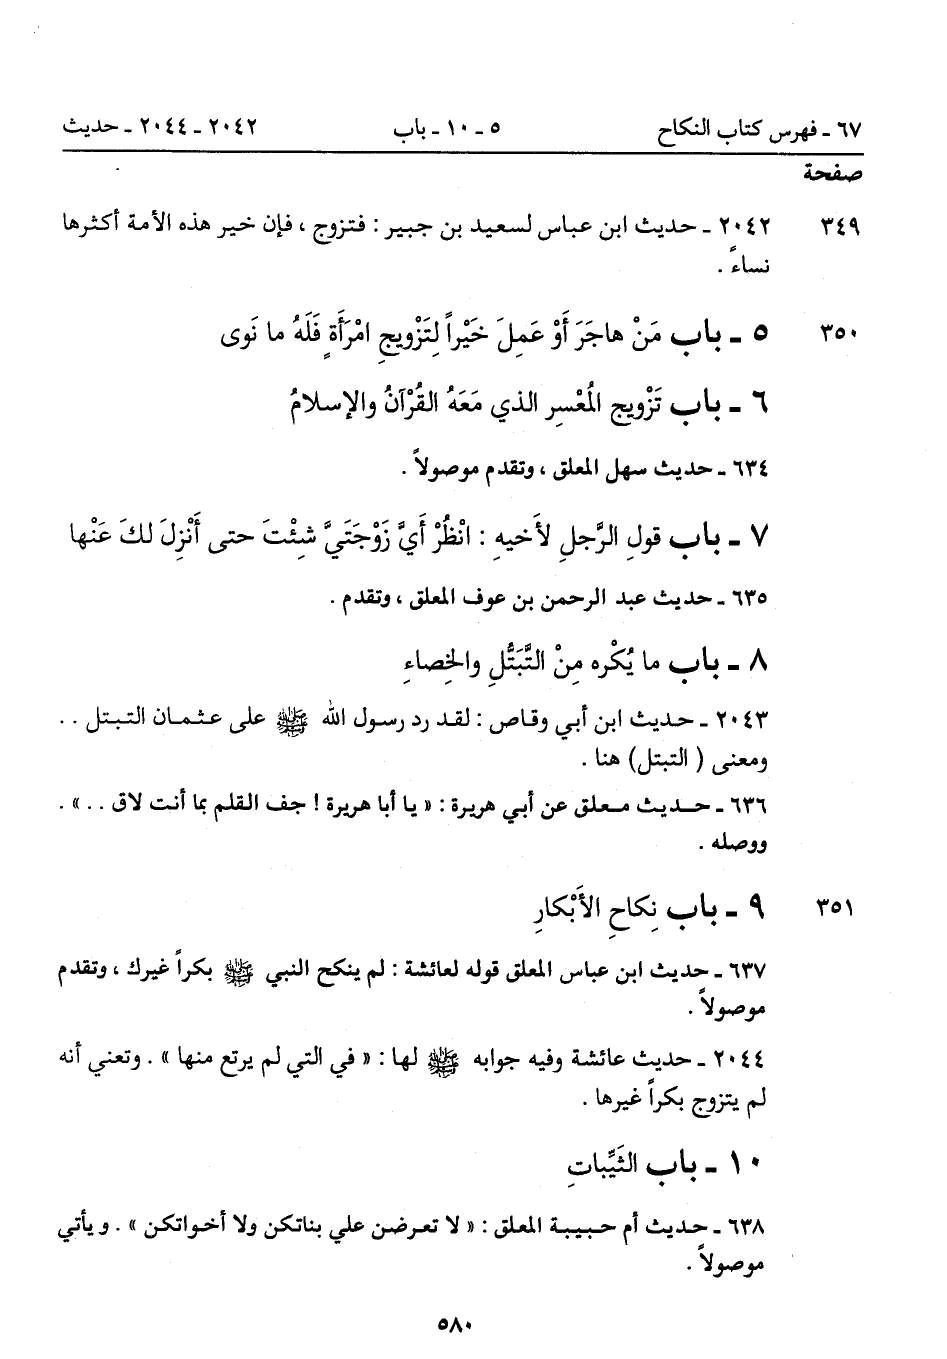 ٦٧ ـ فهرس كتاب النكاح ٥ ـ ١٠ ـ باب ٢٠٤٢ ـ ٢٠٤٤ ـ حديث
صفحة
٣٤٩ ٢٠٤٢ ـ حديث ابن عباس لسعيد بن جبير : فتزوج ، فإن خير هذه الأمة أكثرها
نساءً .
٣٥٠ ٥ ـ باب مَنْ هاجَرَ أَوْ عَمِلَ خَيْراً لِتَزْوِيجِ امْرَأَةٍ فَلَهُ ما نَوى
٦ ـ باب تَزْوِيج المُعْسِر الذي مَعَهُ القُرْآنُ والإسلامُ
٦٣٤ ـ حديث سهل المعلق ، وتقدم موصولاً .
٧ ـ باب قولِ الرَّجلِ لأَخيهِ : انْظُرْ أَيَّ زَوْجَتَيَّ شِئْتَ حتى أَنْزِلَ لكَ عَنْها
٦٣٥ ـ حديث عبد الرحمن بن عوف المعلق ، وتقدم .
٨ ـ باب ما يُكْره مِنْ التَّبَتُّلِ والخِصاءِ
٢٠٤٣ ـ حديث ابن أبي وقاص : لقد رد رسول الله ﷺ على عثمان التبتل . .
ومعنى ( التبتل) هنا .
٦٣٦ ـ حديث معلق عن أبي هريرة : « يا أبا هريرة ! جف القلم بما أنت لاق . .» .
ووصله .
٣٥١ ٩ ـ باب نِكاحِ الأَبْكارِ
٦٣٧ ـ حديث ابن عباس المعلق قوله لعائشة : لم ينكح النبي ﷺ بكراً غيرك ، وتقدم
موصولاً .
٢٠٤٤ ـ حديث عائشة وفيه جوابه ﷺ لها : « في التي لم يرتع منها » . وتعني أنه
لم يتزوج بكراً غيرها .
١٠ ـ باب الثَيِّباتِ
٦٣٨ ـ حديث أم حبيبة المعلق : « لا تعرضن علي بناتكن ولا أخواتكن » . ويأتي
موصولاً .
٥٨٠